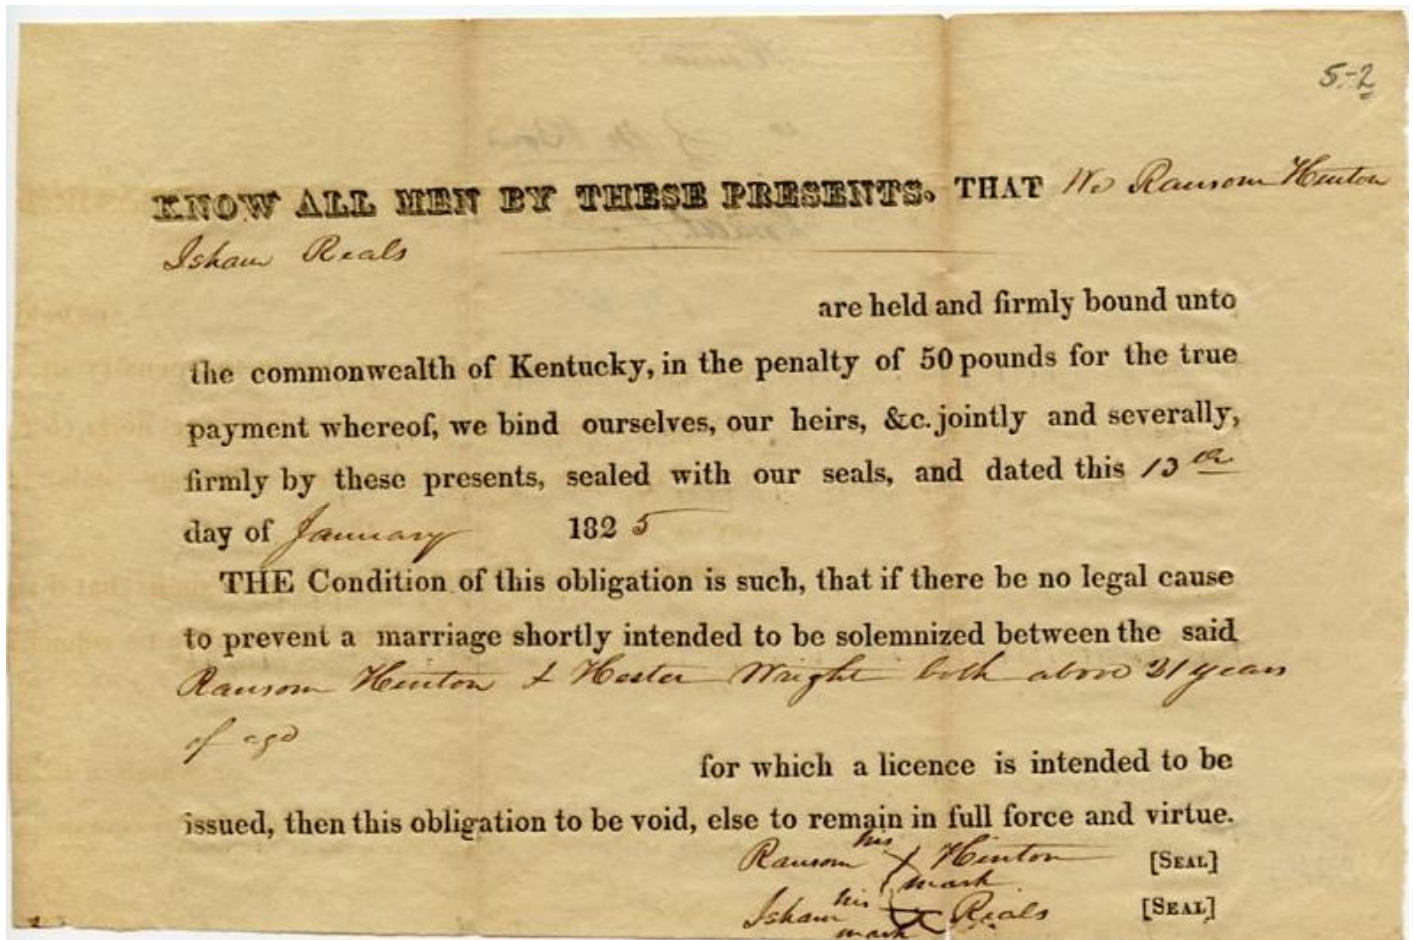 5-2
KNOW ALL MEN BY THESE PRESENTS. THAT We Ransom Hinton
Isham Reals
are held and firmly bound unto
the commonwealth of Kentucky, in the penalty of 50 pounds for the true
payment whereof, we bind ourselves, our heirs, &c. jointly and severally,
firmly by these presents, sealed with our seals, and dated this 13th
day of January 1825
THE Condition of this obligation is such, that if there be no legal cause
to prevent a marriage shortly intended to be solemnized between the said
Ransom Hinton & Hester Wright both above 21 years
of age
for which a licence is intended to be
issued, then this obligation to be void, else to remain in full force and virtue.
his
Ransom X Hinton [SEAL]
mark
his
Isham X Reals [SEAL]
mark